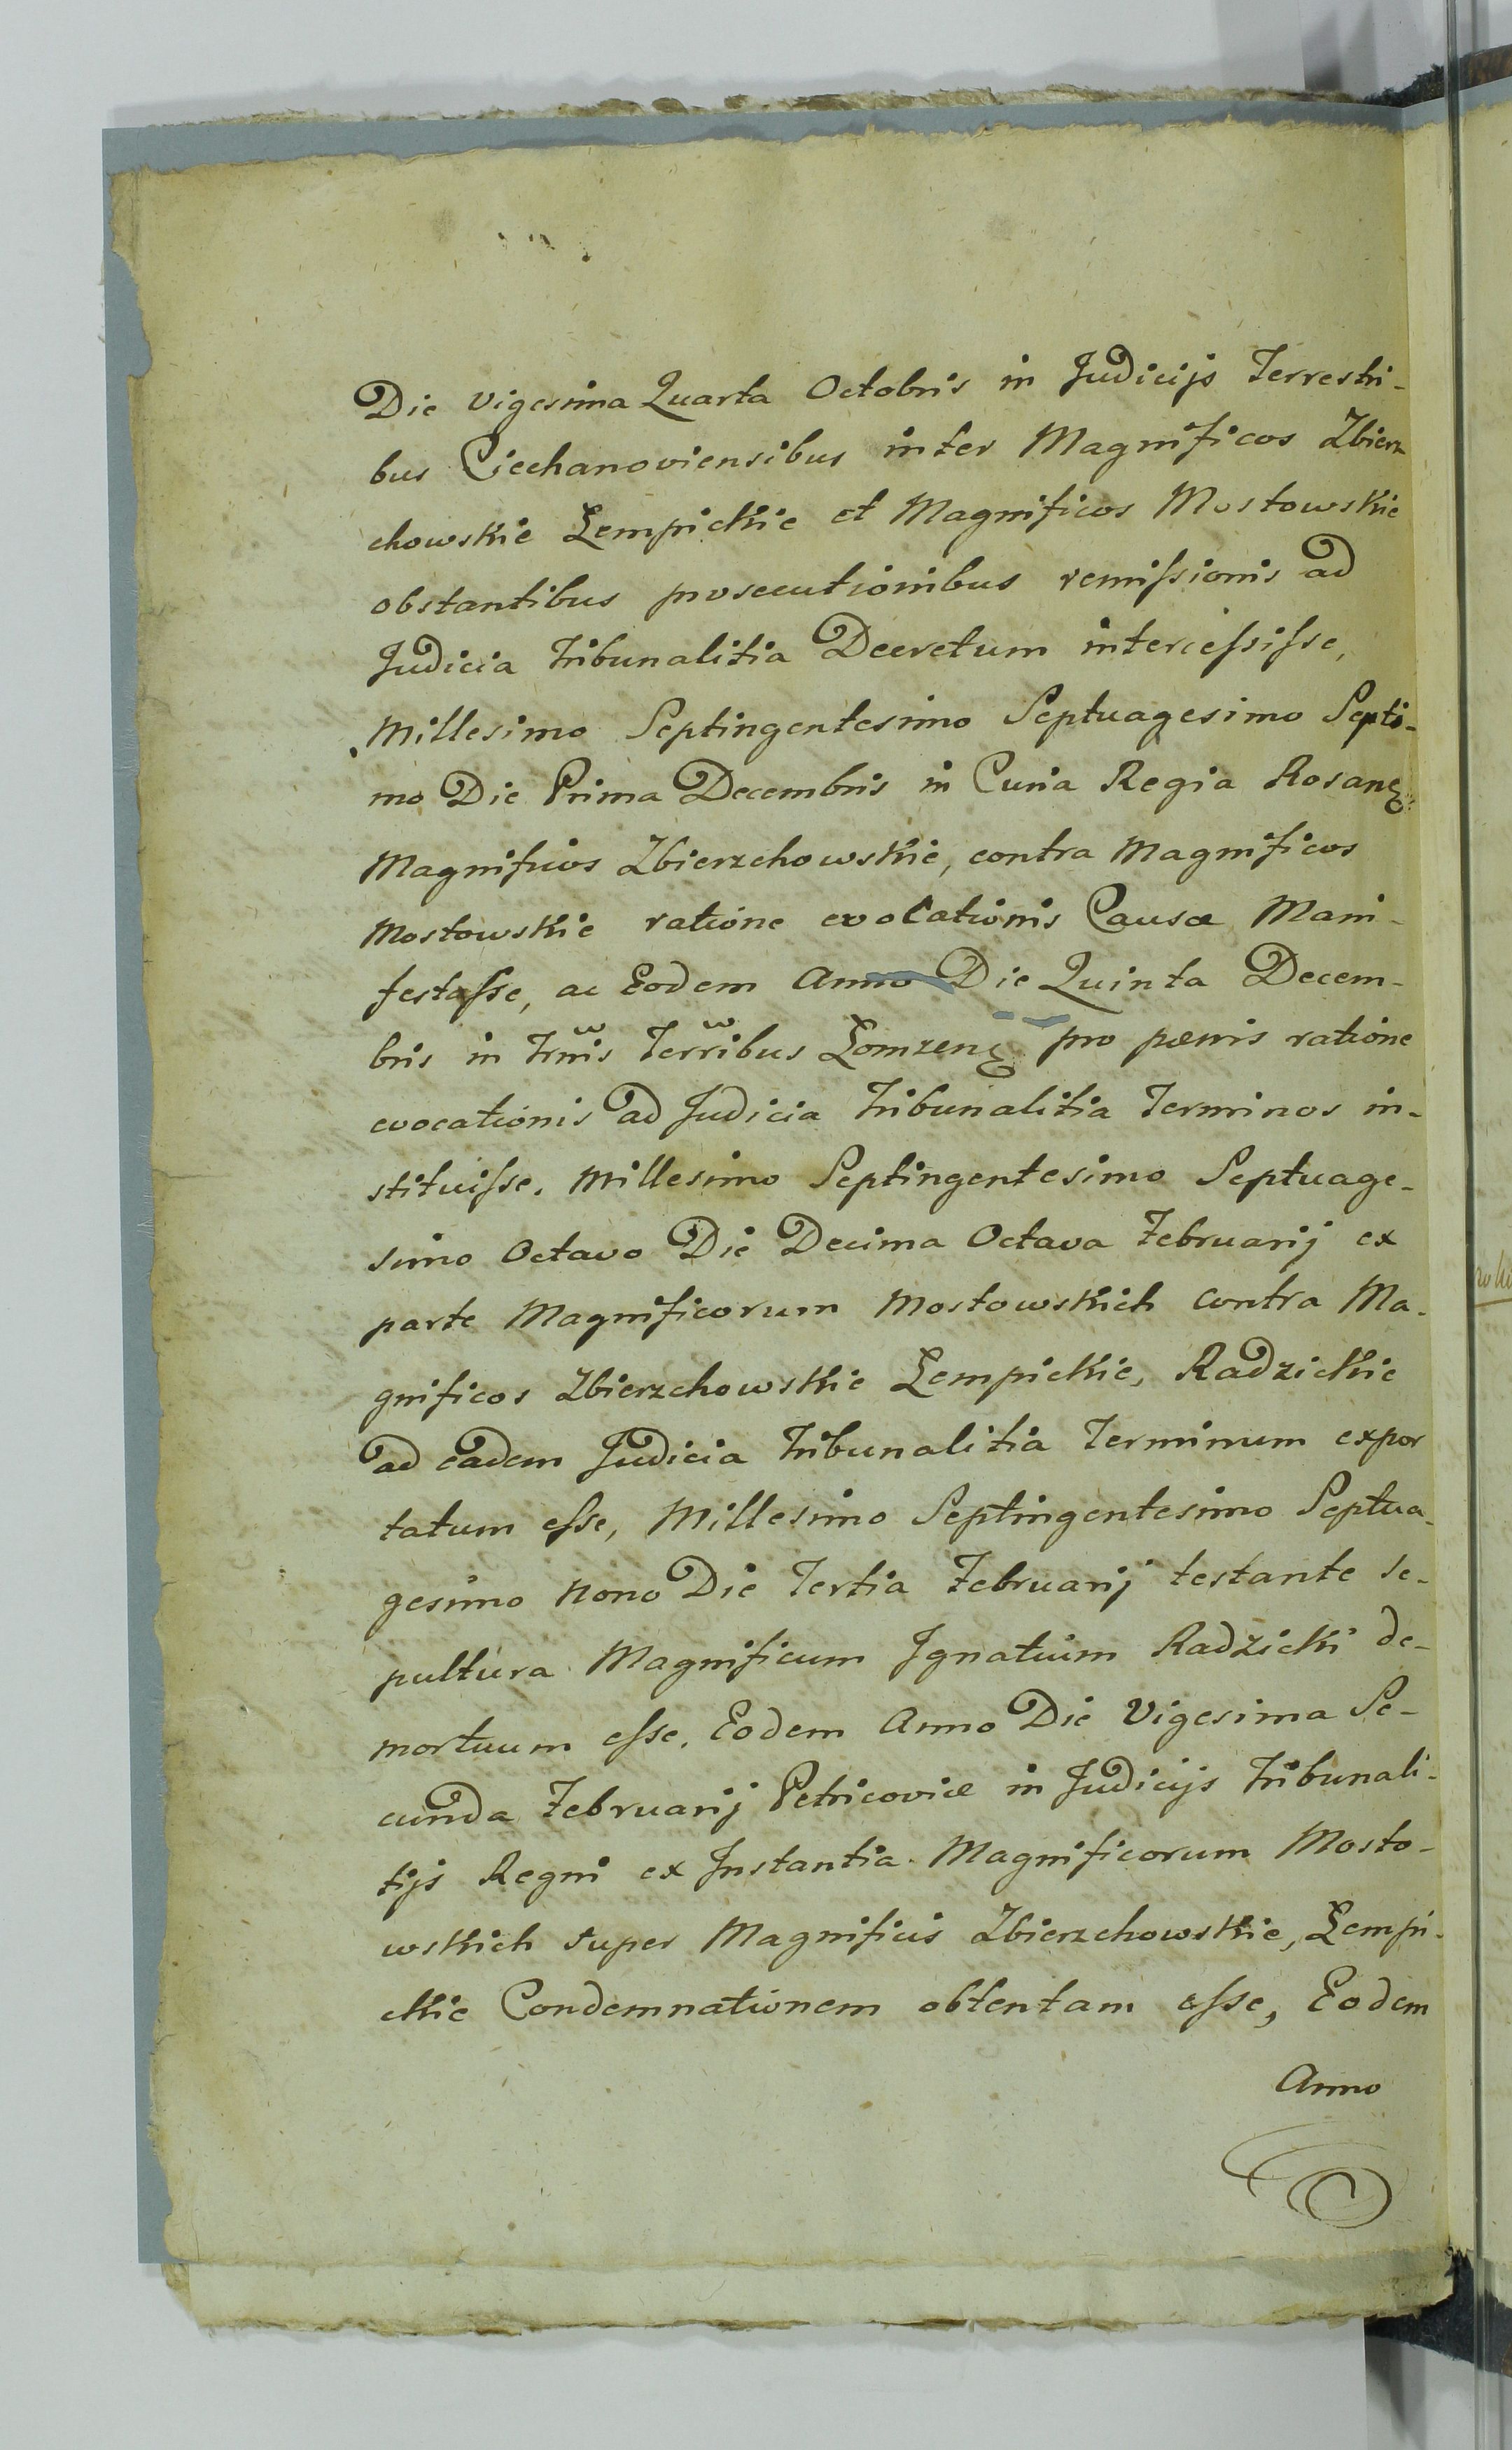 Die vigesima Quarta Octobris in Judicijs Terrestri-
bus Ciechanoviensibus inter Magnificos Zbierz
chowskie Łempickie et Magnificos Mostowskie
obstantibus prosecutionibus remissionis ad
Judicia Tribunalitia Decretum intercessisse,
Millesimo Septingentesimo Septuagesimo Septi-
mo Die Prima Decembris in Curia Regia Rosanę
Magnificos Zbierzchowskie, contra Magnificos
Mostowskie ratione evocationis Causæ Mani-
festasse, ac Eodem Anno Die Quinta Decem-
bris in Trnis Terribus Łomzenę pro pœnis ratione
evocationis ad Judicia Tribunalitia Terminos in-
stituisse. Millesimo Septingentesimo Septuage-
simo Octavo Die Decima Octava Februarij ex
parte Magnificorum Mostowskich contra Ma-
gnificos Zbierzchowskie Łempickie, Radzickie
ad eadem Judicia Tribunalitia Terminum expor
tatum esse, Millesimo Septingentesimo Septua-
gesimo Nono Die Tertia Februarij testante se-
pultura Magnificum Ignatium Radzicki de-
mortuum esse. Eodem Anno Die Vigesima Se-
cunda Februarij Petricoviæ in Judicijs Tribunali-
tijs Regni ex Instantia Magnificorum Mosto-
wskich super Magnificis Zbierzchowskie, Łempi-
ckie Condemnationem obtentam esse, Eodem
Anno